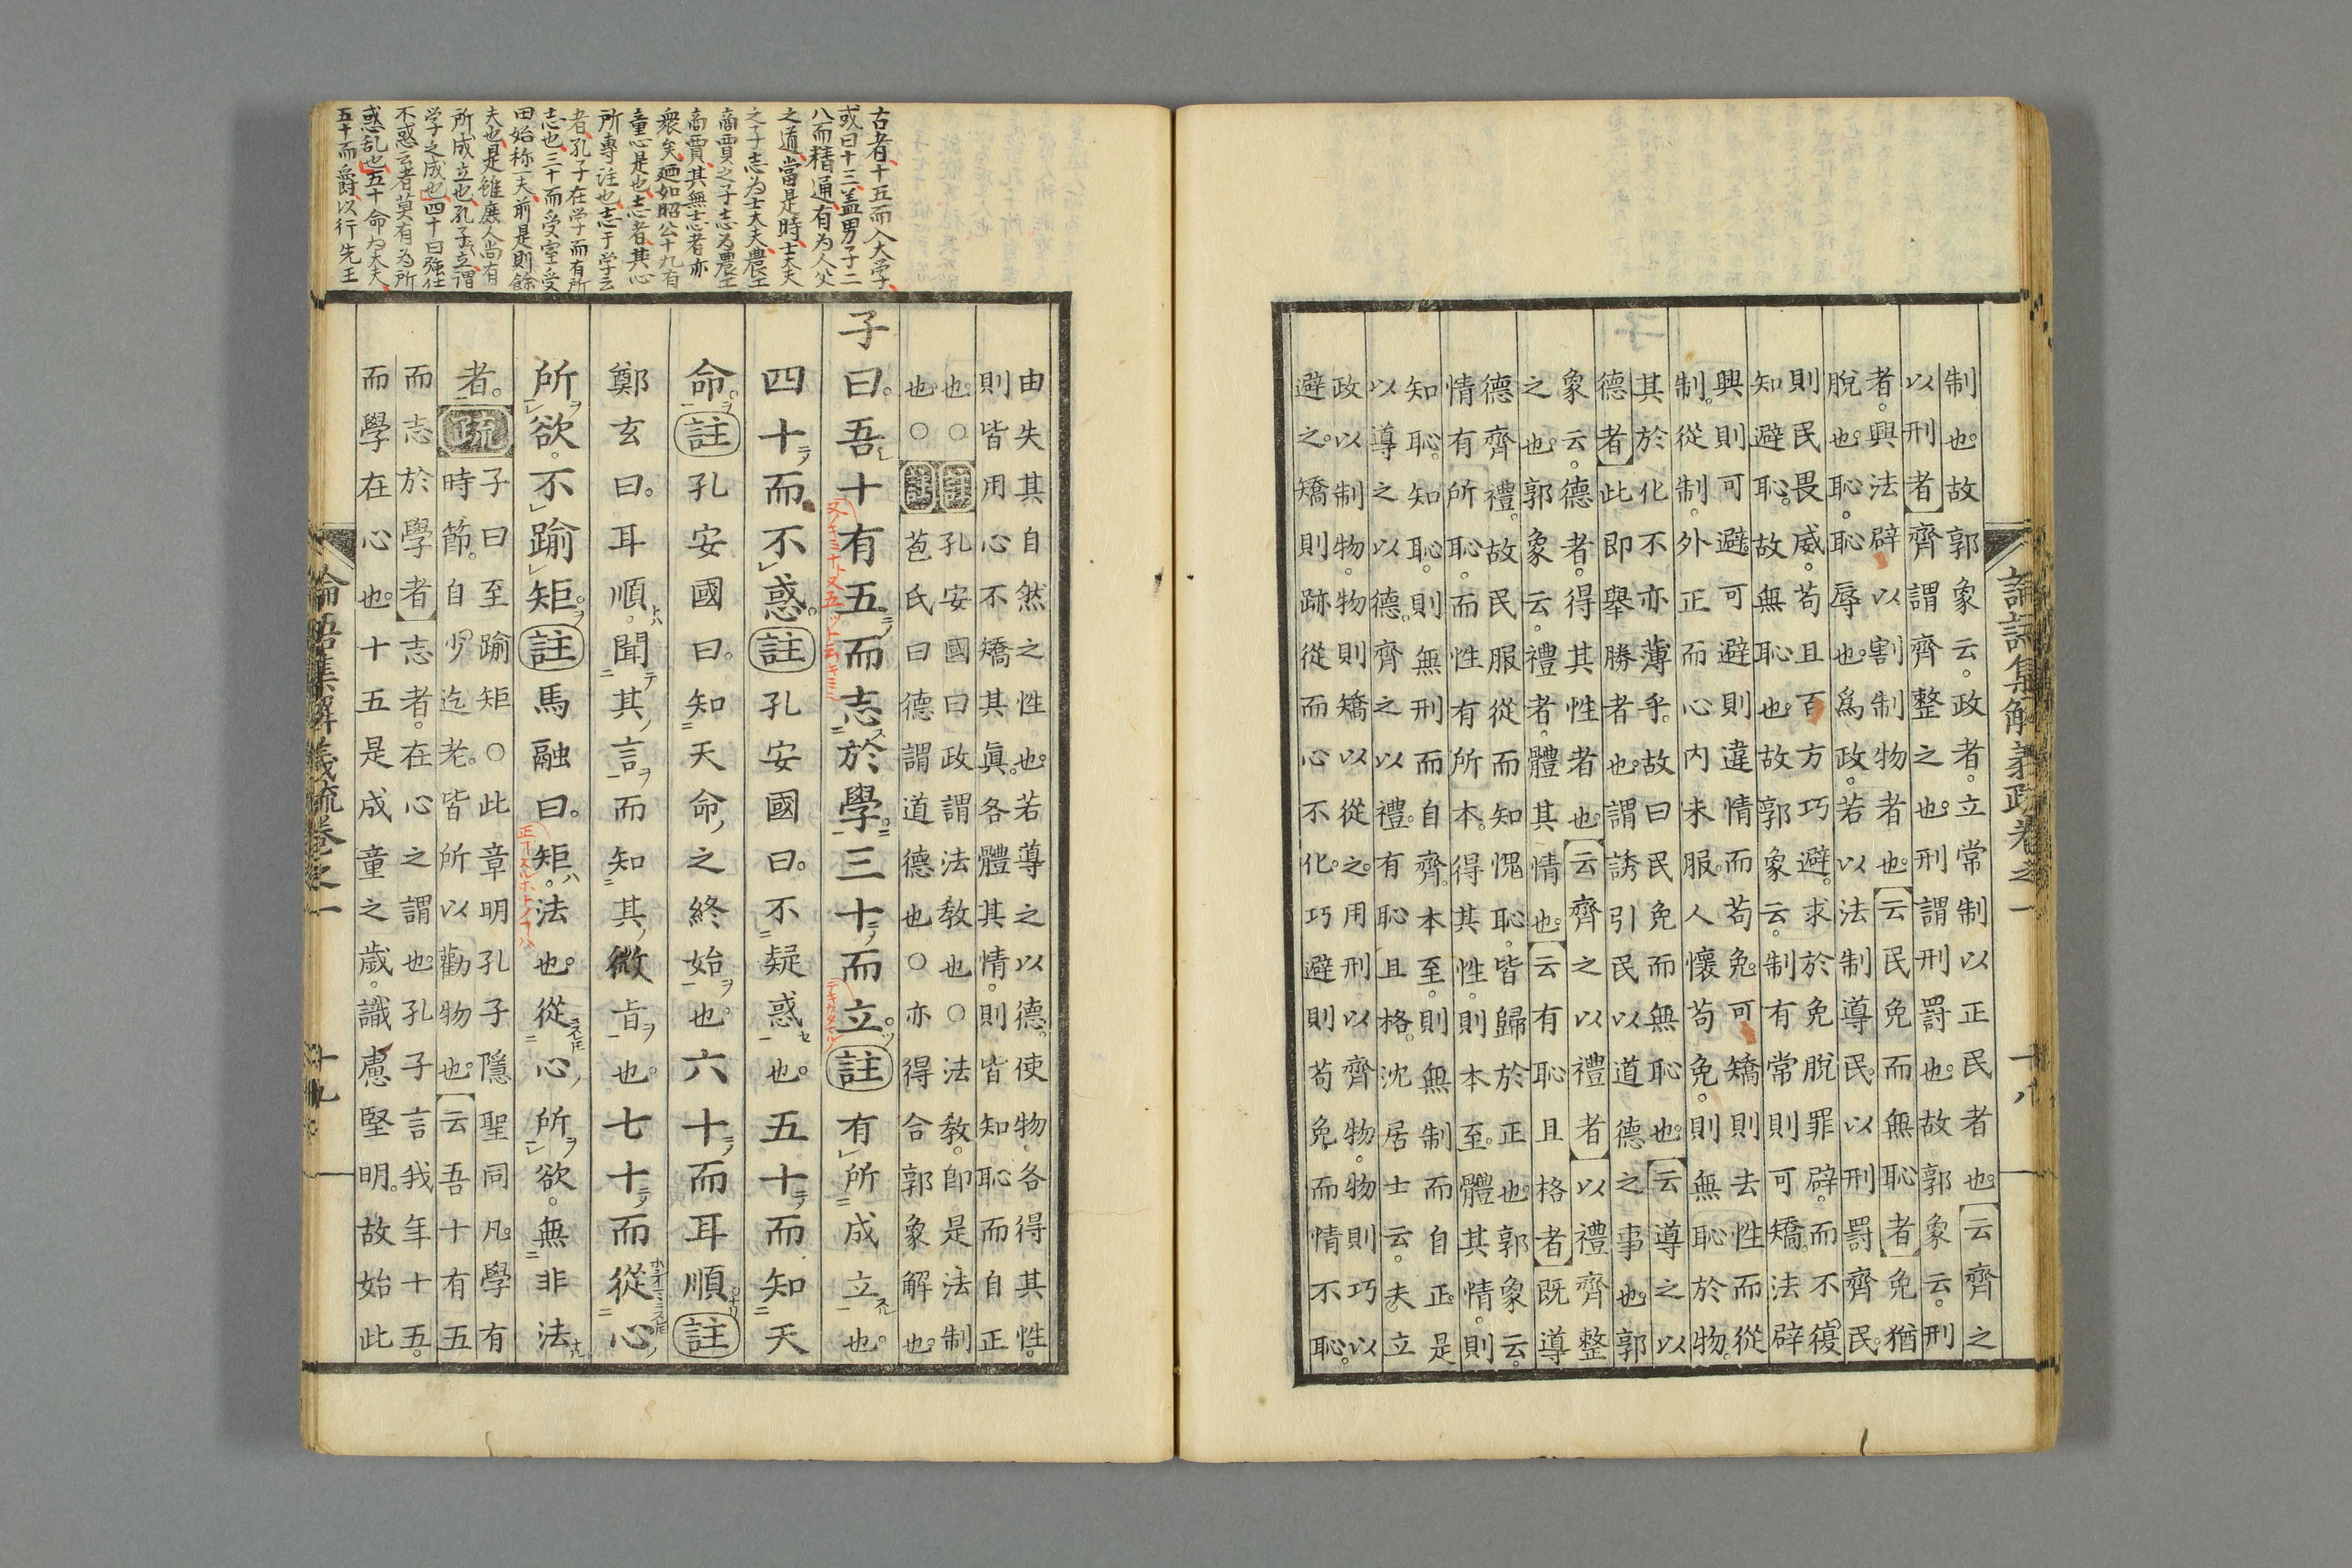 論語集解義疏卷之一 十八
制也。故郭象云。政者。立常制以正民者也。【云齊之
以刑者】齊謂齊整之也。刑謂刑罰也。故郭象云。刑
者。興法辟以割制物者也。【云民免而無恥者】免猶
脫也。恥。恥辱也。爲政。若以法制導民。以刑罰齊民。
則民畏威。苟且百方巧避。求於免脫罪辟。而不復
知避恥。故無恥也。故郭象云。制有常則可矯。法辟
興則可避。可避則違情而苟免。可矯則去性而從
制。從制。外正而心內未服。人懷苟免。則無恥於物。
其於化不亦薄乎。故曰民免而無恥也。【云導之以
德者】此即舉勝者也。謂誘引民以道德之事也。郭
象云。德者。得其性者也。【云齊之以禮者】以禮齊整
之也。郭象云。禮者。體其情也。【云有恥且格者】既導
德齊禮。故民服從而知愧恥。皆歸於正也。郭象云。
情有所恥。而性有所本。得其性。則本至。體其情。則
知恥。知恥。則無刑而自齊。本至。則無制而自正。是
以導之以德。齊之以禮。有恥且格。沈居士云。夫立
政以制物。物則矯以從之。用刑以齊物。物則巧以
避之。矯則跡從而心不化。巧避則苟免而情不恥。
古者十五而入大学
或曰十三蓋男子二
八而精通有为人父
之道當是時士大夫
之子志为士大夫農工
商賈之子志为農工
商賈其無志者亦
衆矣廼如昭公十九有
童心是也志者其心
所專注也志于学云
者孔子在学而有所
志也三十而受室受
田始称一夫前是則餘
夫也是雖庶人尚有
所成立也孔子立謂
学之成也四十曰強仕
不惑云者莫有为所
惑乱也五十命为大夫
五十而爵以行先王
由失其自然之性也。若導之以德。使物各得其性。
則皆用心不矯其眞。各體其情。則皆知恥而自正
也。○註孔安國曰政謂法教也○法教。即是法制
也。○註苞氏曰德謂道德也○亦得合郭象解也。
子曰。吾十有五而志於學。三十而立。註有所成立也。
四十而不惑。註孔安國曰。不疑惑也。五十而知天
命。註孔安國曰。知天命之終始也。六十而耳順註
鄭玄曰。耳順。聞其言而知其微旨也。七十而從心
所欲。不踰矩。註馬融曰。矩。法也。從心所欲。無非法
者。疏子曰至踰矩○此章明孔子隱聖同凡。學有
時節。自少迄老。皆所以勸物也。【云吾十有五
而志於學者】志者。在心之謂也。孔子言我年十五。
而學在心也。十五是成童之歲。識慮堅明。故始此
論語集解義疏卷之一 十九